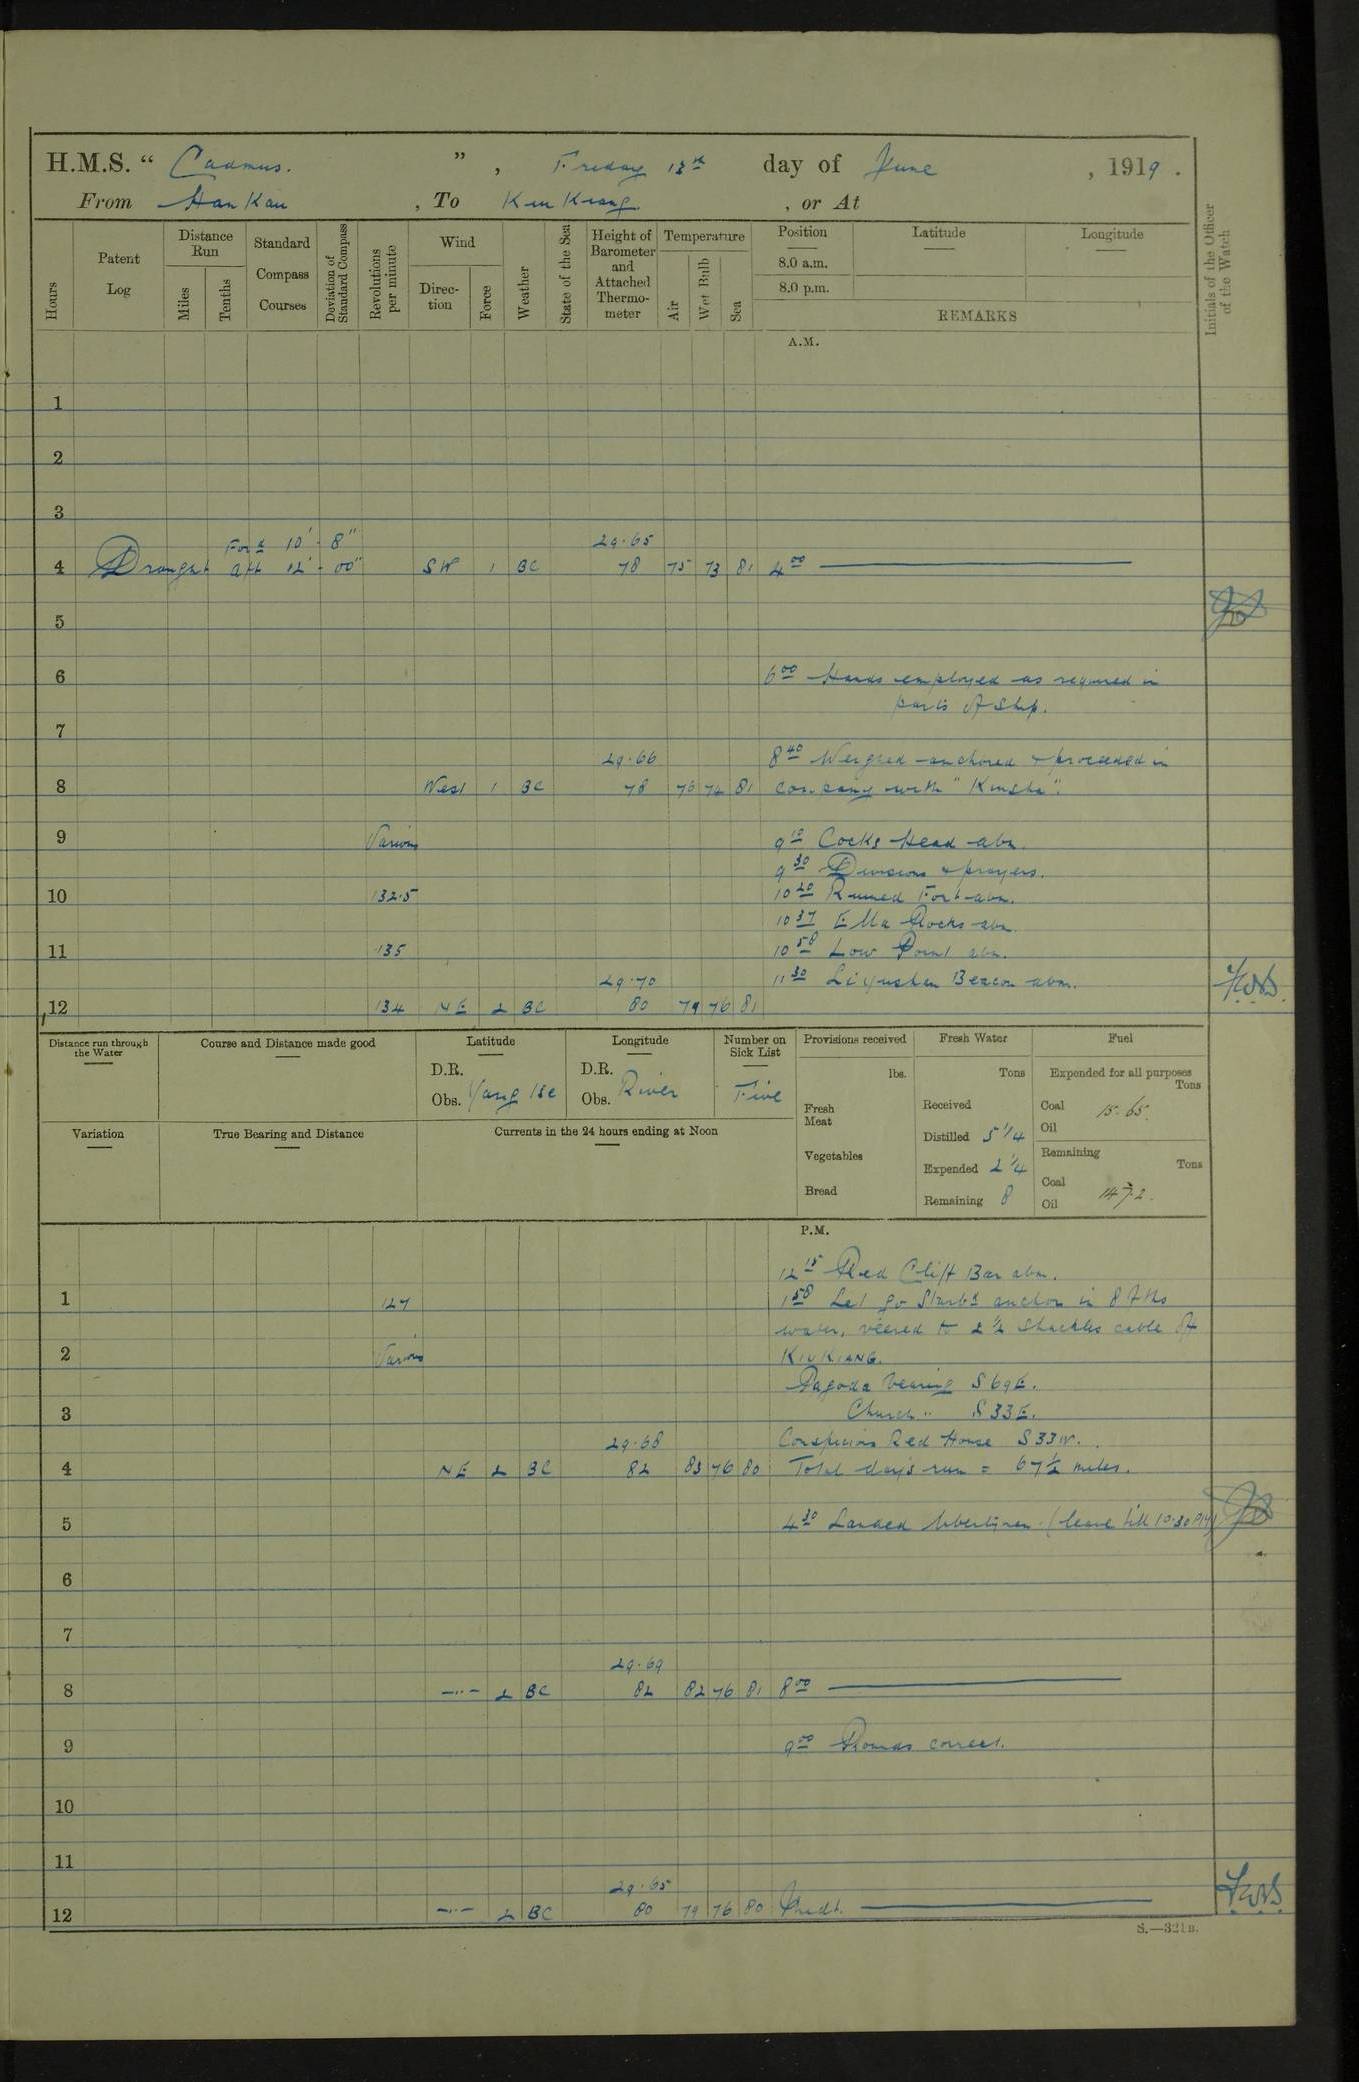 H.M.S. “ Cadmus. ” , Friday 13th day of June , 1919 .
From Hankau , To Kiu Kiang. , or At
Hours
Patent Log
Distance Run
Miles
Tenths
Standard Compass Courses
Deviation of Standard Compass
Revolutions per minute
Wind
Direction
Force
Weather
State of the Sea
Height of Barometer and Attached Thermometer
Temperature
Air
Wet Bulb
Sea
Position
8.0 a.m.
8.0 p.m.
Latitude
Longitude
REMARKS
Initials of the Officer of the Watch
A.M.
1
2
3
Ford 10' - 8" 29.65
4 Draught aft 12' - 00" SW 1 BC 78 75 73 81 4 00
5
6 6 00 Hands employed as required in
parts of ship.
7
29.66 8 40 Weighed anchored & proceeded in
8 West 1 BC 78 76 74 81 company with "Kinsha".
9 Various 9 10 Cocks Head abm.
9 30 Divisions & prayers.
10 132.5 10 20 Ruined Fort abm.
10 37 Ella Rocks abm.
11 135 10 58 Low Point abm.
29.70 11 30 Liyushan Beacon abm.
12 134 NE 2 BC 80 79 76 81
Distance run through the Water
Course and Distance made good
Latitude
D.R.
Obs. Yang tse
Longitude
D.R.
Obs. River
Number on Sick List
Five
Provisions received
lbs.
Fresh Meat
Vegetables
Bread
Fresh Water
Tons
Received
Distilled 5 1/4
Expended 2 1/4
Remaining 8
Fuel
Expended for all purposes
Tons
Coal 15.65.
Oil
Remaining
Tons
Coal
Oil
Variation
True Bearing and Distance
Currents in the 24 hours ending at Noon
P.M.
12 15 Red Cliff Bar abm.
1 127 1 58 Let go Starbd anchor in 8 fths
water, veered to 2 1/2 shackles cable off
2 Various KIUKIANG.
Pagoda bearing S69E.
3 Church " S33E.
29.68 Conspicious Red House S33W.
4 NE 2 BC 82 83 76 80 Total days run = 67 1/2 miles.
5 4 30 Landed libertymen (leave till 10.30 PM)
6
7
29.69
8 —"— 2 BC 82 82 76 81 8 00
9 9 00 Rounds correct.
10
11
29.65
12 —"— 2 BC 80 79 76 80 Midt.
S.—321B.